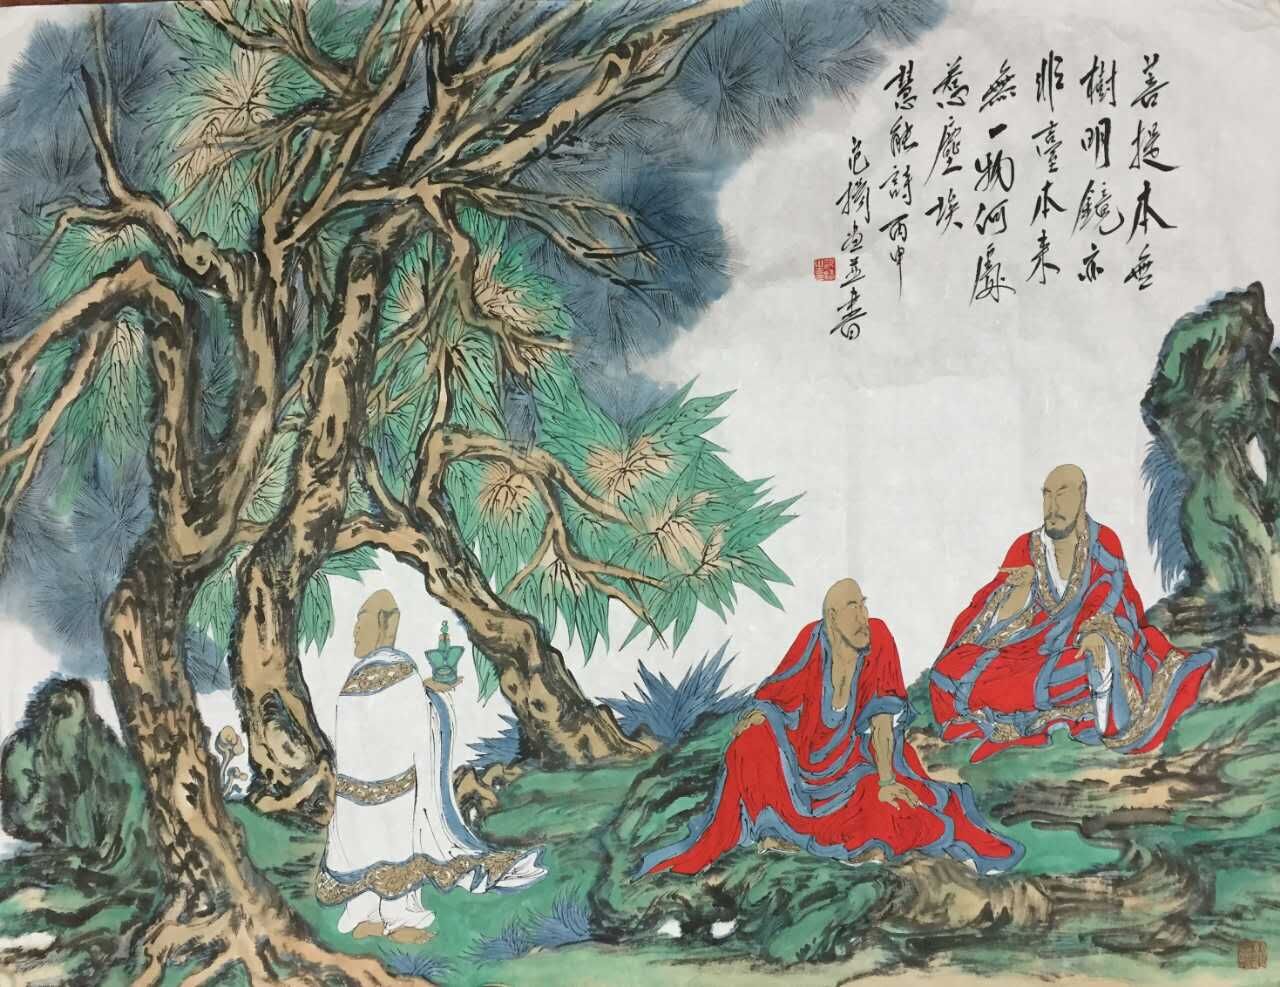 菩提本無
樹明鏡亦
非臺本来
無一物何處
惹塵埃
慧能詩丙申
並書